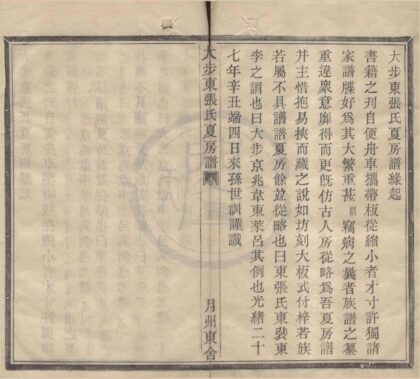 大步東張氏夏房譜緣起
書籍之刋自便舟車攜帶板從縮小者才寸許獨諸
家譜牒好爲其大繁重甚訓竊病之曩者族譜之纂
重違衆意靡得而更旣仿古人房從略爲吾夏房譜
幷主惜抱易挾而藏之說如坊刻大板式付梓若族
若屬不具譜譜夏房餘並從略也曰東張氏東裴東
李之謂也曰大步京兆韋東萊呂其例也光緒二十
七年辛丑端四日來孫世訓謹識
大步東張氏夏房譜
月州東舍